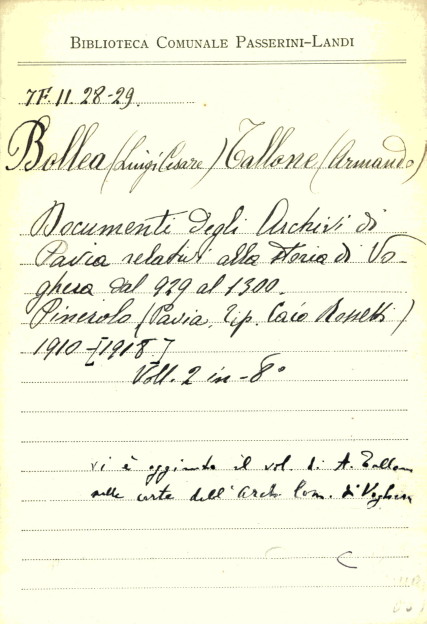 BIBLIOTECA COMUNALE PASSERINI-LANDI
7F.11.28-29.
Bollea (Luigi Cesare) Tallone (Armando)
Documenti degli Archivi di
Pavia relativi alla storia di Vo-
ghera dal 929 al 1300.
Pinerolo (Pavia, Tip. Caio Rossetti)
1910-[1918]
Voll. 2 in-8°
vi è aggiunto il vol. di A. Tallone
sulle carte dell'Arch. Com. di Voghera